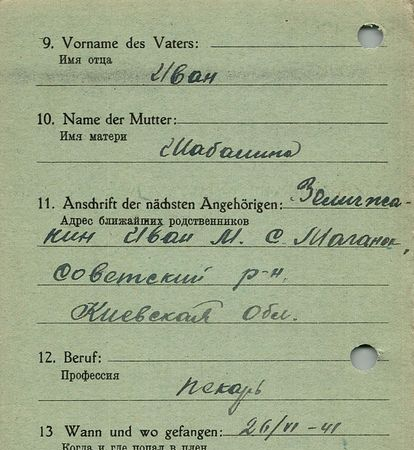 9. Vorname des Vaters:
Имя отца
Иван
10. Name der Mutter:
Имя матери
Шабалина
11. Anschrift der nächsten Angehörigen: Зеличжа-
Адрес ближайших родственников
кин Иван М. с. Маганок,
Советский р-н,
Киевская обл.
12. Beruf:
Профессия
пекарь
13 Wann und wo gefangen: 26/VI-41
Когда и где попал в плен